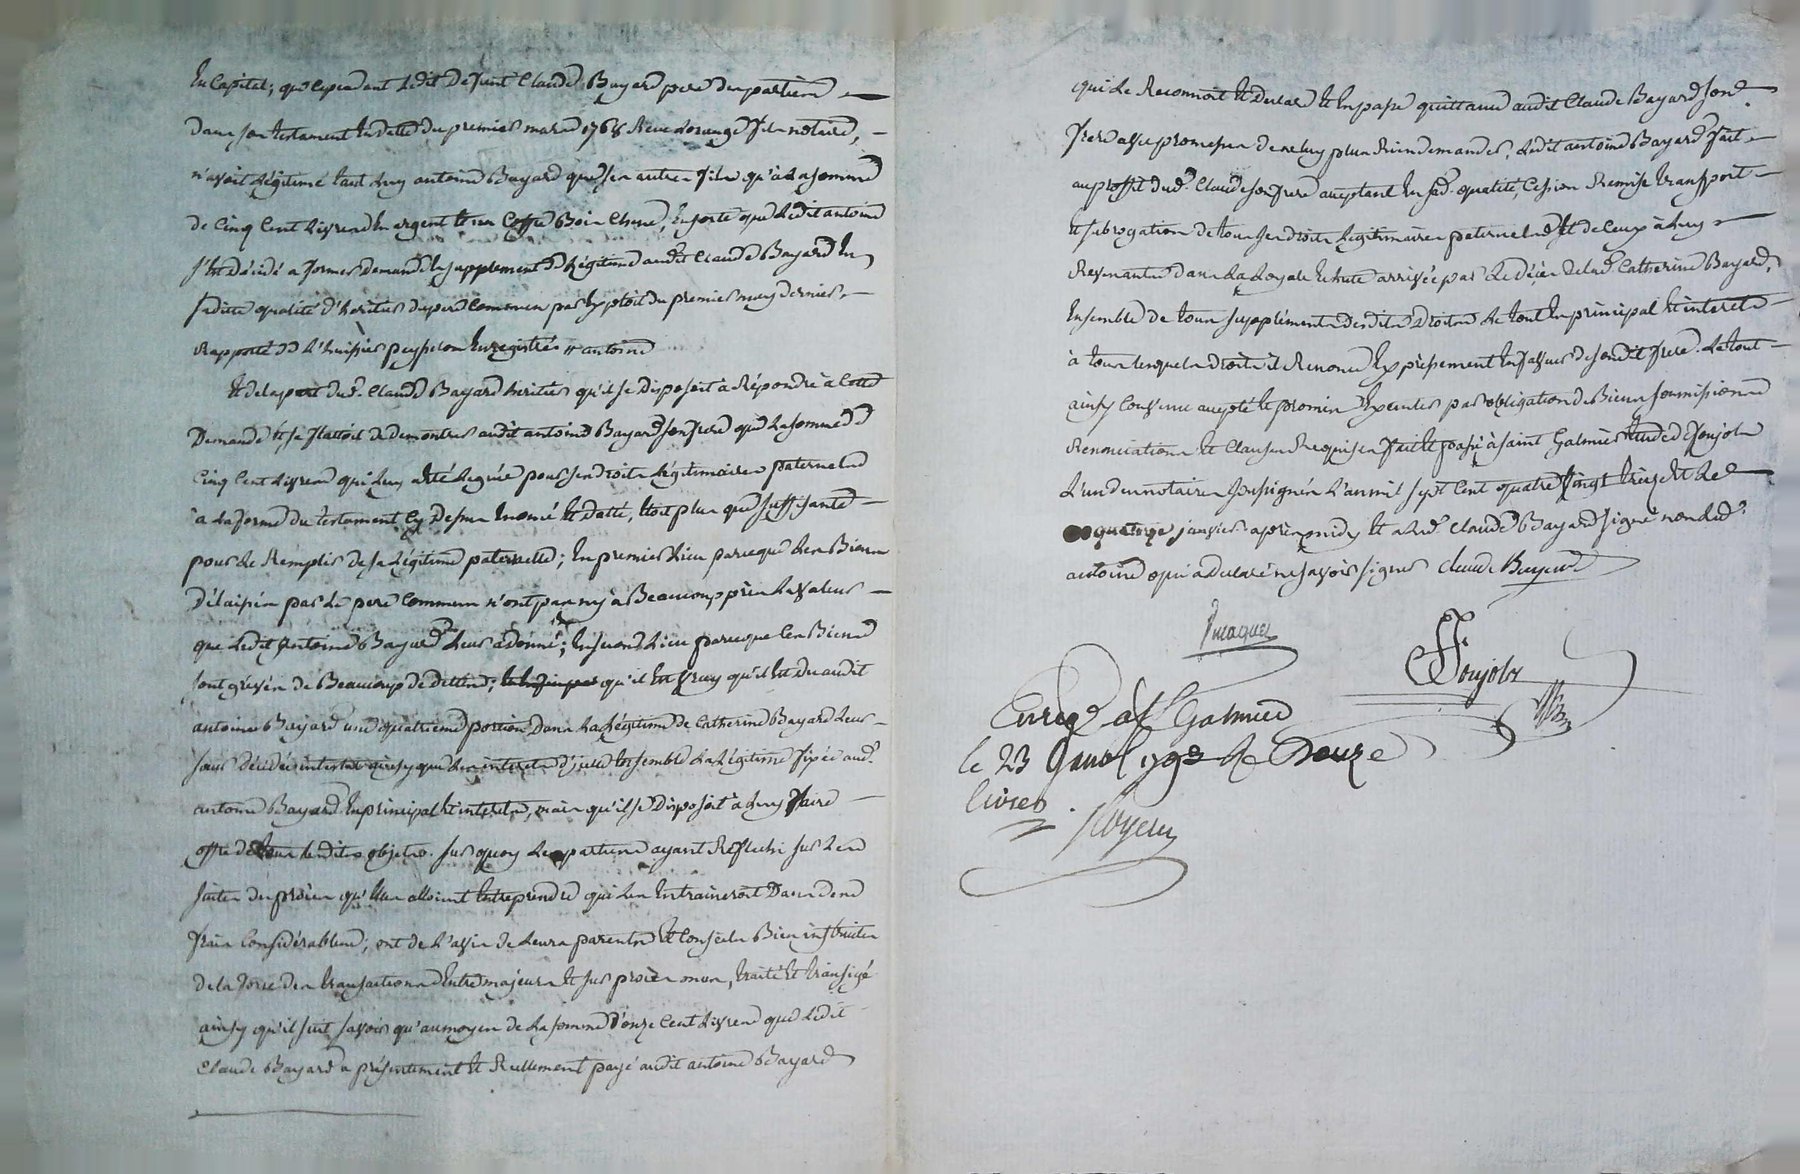 En Capital; que cependant Ledit Defunt Claude Bayard pere des parties
dans son testament En datte du premier mars 1768 Reçu Lorange fils notaire,
n'avoit Légitimé tant Luy antoine Bayard que ses autres fils qu'à La somme
de Cinq Cent Livres En argent Et un Coffre Bois Chene, En sorte que Ledit antoine
s'Est décidé a former demande En supplement de Légitime audit Claude Bayard En
sadite qualité d'heritier du pere Commun par Exploit du premier may dernier,
Rapporté de L'huissier peysselon Enregistré # antoine
Et de la part dud. Claude Bayard heritier qu'il se disposoit à Répondre à Cette
Demande Et se flattoit de demontrer audit antoine Bayard son frere que La somme de
Cinq Cent Livres qui Luy a été Leguée pour ses droits Légitimaires paternels
à La forme du testament Cy Dessus Enoncé Et datté, Etoit plus que suffisante
pour Le Remplir de sa Légitime paternelle; En premier Lieu parceque Les Biens
Délaissés par Le pere Commun n'ont pas ny à Beaucoup près La valeur
que Ledit antoine Bayard Leur a donné; En second Lieu parceque Les Biens
sont grévés de Beaucoup de dettes; qu'il Est vray qu'il Est Du audit
antoine Bayard une quatrieme portion Dans La Légitime de Catherine Bayard Leur
sœur décédée intestat ainsy que Les interets d'icelle Ensemble La Légitime fixée aud.
antoine Bayard En principal Et interets, mais qu'il se Disposoit à Luy faire
offre de tous Lesdits objets. sur quoy Les parties ayant Reflechi sur Les
suites du procès qu'Elles alloient Entreprendre qui Les Entraineroit Dans des
frais Considérables, ont de L'avis de Leurs parents Et Conseils Bien instruites
de la force des transactions Entre majeurs Et sur procès mus, traité Et transigé
ainsy qu'il suit savoir qu'au moyen de La somme d'onze Cent Livres que Ledit
Claude Bayard a présentement Et Réellement payé audit antoine Bayard
qui Le Reconnoit Et Declare Et En passe quittance audit Claude Bayard son
frere avec promesse de ne Luy plus Rien demander, Ledit antoine Bayard fait
au proffit dud. Claude son frere acceptant En sad. qualité, Cession Remise transport
Et subrogation de tous ses droits Legitimaires paternels Et de Ceux à Luy
Revenants dans La Loyale Echute arrivée par Le décès de Lad. Catherine Bayard,
Ensemble de tous supplements desdits Droits Le tout En principal Et interets
à tous Lesquels droits il Renonce Expressement En faveur de son dit frere. Le tout
ainsy Convenu accepté Et promis Executer par obligation de Biens soumissions
Renonciations Et Clauses Requises fait Et passé à Saint Galmier Etude de Soujols
L'un des notaires soussignés L'an mil sept Cent quatre vingt treize Et Le
quatorze janvier après midy Et a Led. Claude Bayard signé non Led.
antoine qui a declaré ne savoir signer Claude Bayard
Soujols
Enregé a St Galmier
le 23 Janvr 1793 Re Douze
livres